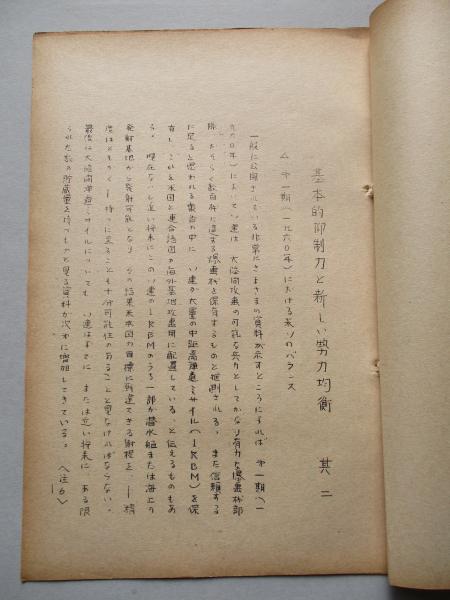 基本的抑制力と新しい勢力均衡　其二
A　第一期（一九六〇年）における米ソのバランス
一般に公開されている非常にさまざまの資料が示すところによれば　第一期（一
九六〇年）において　ソ連は　大陸間攻撃の可能な兵力としてかなり有力な爆撃機部
隊、おそらく数百機に達する爆撃機を保有するものと推測される。また信頼する
に足ると思われる報告の中に　ソ連が大量の中距離弾道ミサイル（IRBM）を保
有し、これを米国と連合諸国の海外基地攻撃用に配置している、と伝えるものもあ
る。現在ないし近い将来にこのソ連のIRBMのうち一部が潜水艦または海上の
発射基地から発射可能となり　その結果米本国の目標に到達できる射程を、－精
度はともかく－持つに至ることも十分可能性のあることと見なければならない。
最後に大陸間弾道ミサイルについても　ソ連はすでに　または近い将来に、ある限
られた数の貯蔵量を持つものと見る資料が次第に増加してきている。（注6）